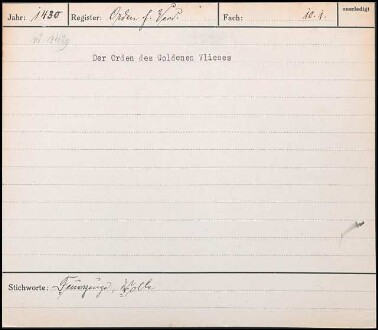 Jahr: 1430 Register: Orden f. Verd. Fach: 10.1. unerledigt
Der Orden des Goldenen Vlieses
Stichworte: Feuerzeuge, Wolle